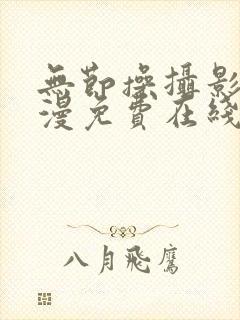 無節操攝影
漫免費在綫
八月飛鷹